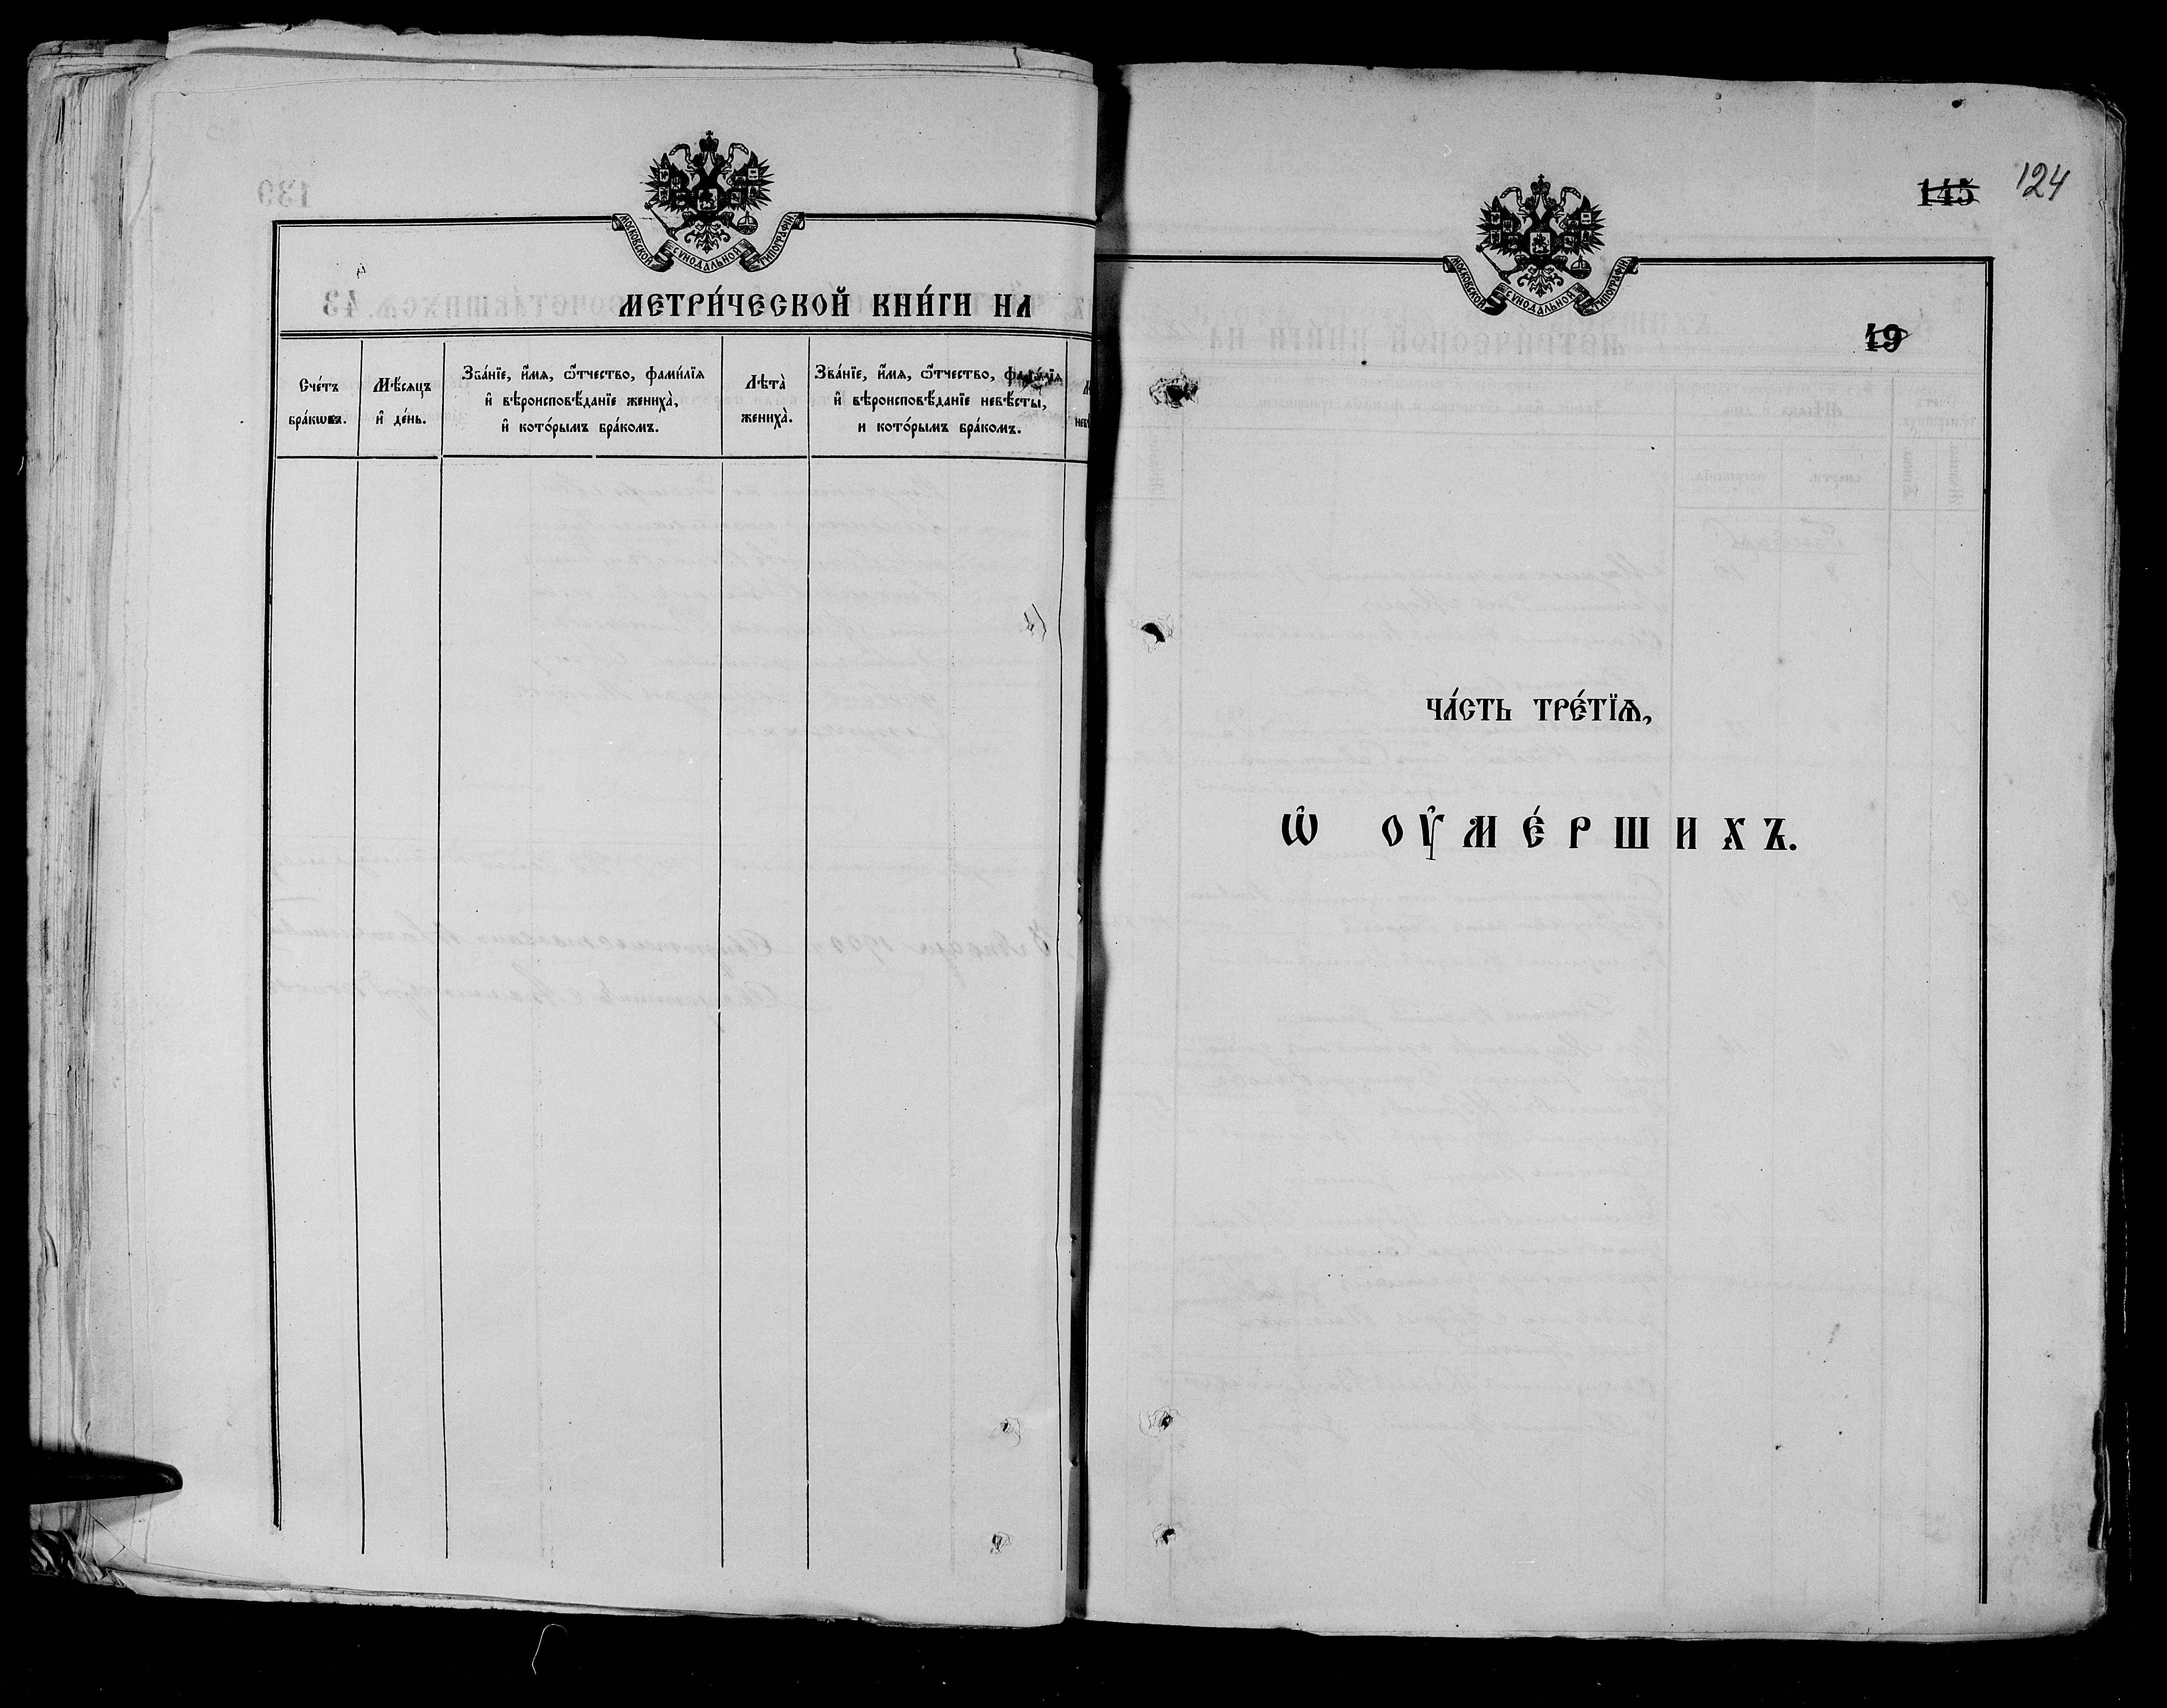 МОСКОВСКОЙ СѴНОДАЛЬНОЙ ТИПОГРАФІИ
МЕТРИ́ЧЕСКОЙ КНИ́ГИ НА
Сче́тъ
бра́кѡвъ.
Мѣ́сяцъ
и҆ де́нь.
Зва́нїе, и҆́мя, ѻ҆́тчество, фами́лїя
и҆ вѣроисповѣ́данїе жениха̀,
и҆ кото́рымъ бра́комъ.
Лѣта̀
жениха̀.
Зва́нїе, и҆́мя, ѻ҆́тчество, фами́лїя
и҆ вѣроисповѣ́данїе невѣ́сты,
и кото́рымъ бра́комъ.
145 124
МОСКОВСКОЙ СѴНОДАЛЬНОЙ ТИПОГРАФІИ
19
ЧА́СТЬ ТРЕ́ТЇѦ,
Ѡ҆ ОУ҆МЕ́РШИХЪ.